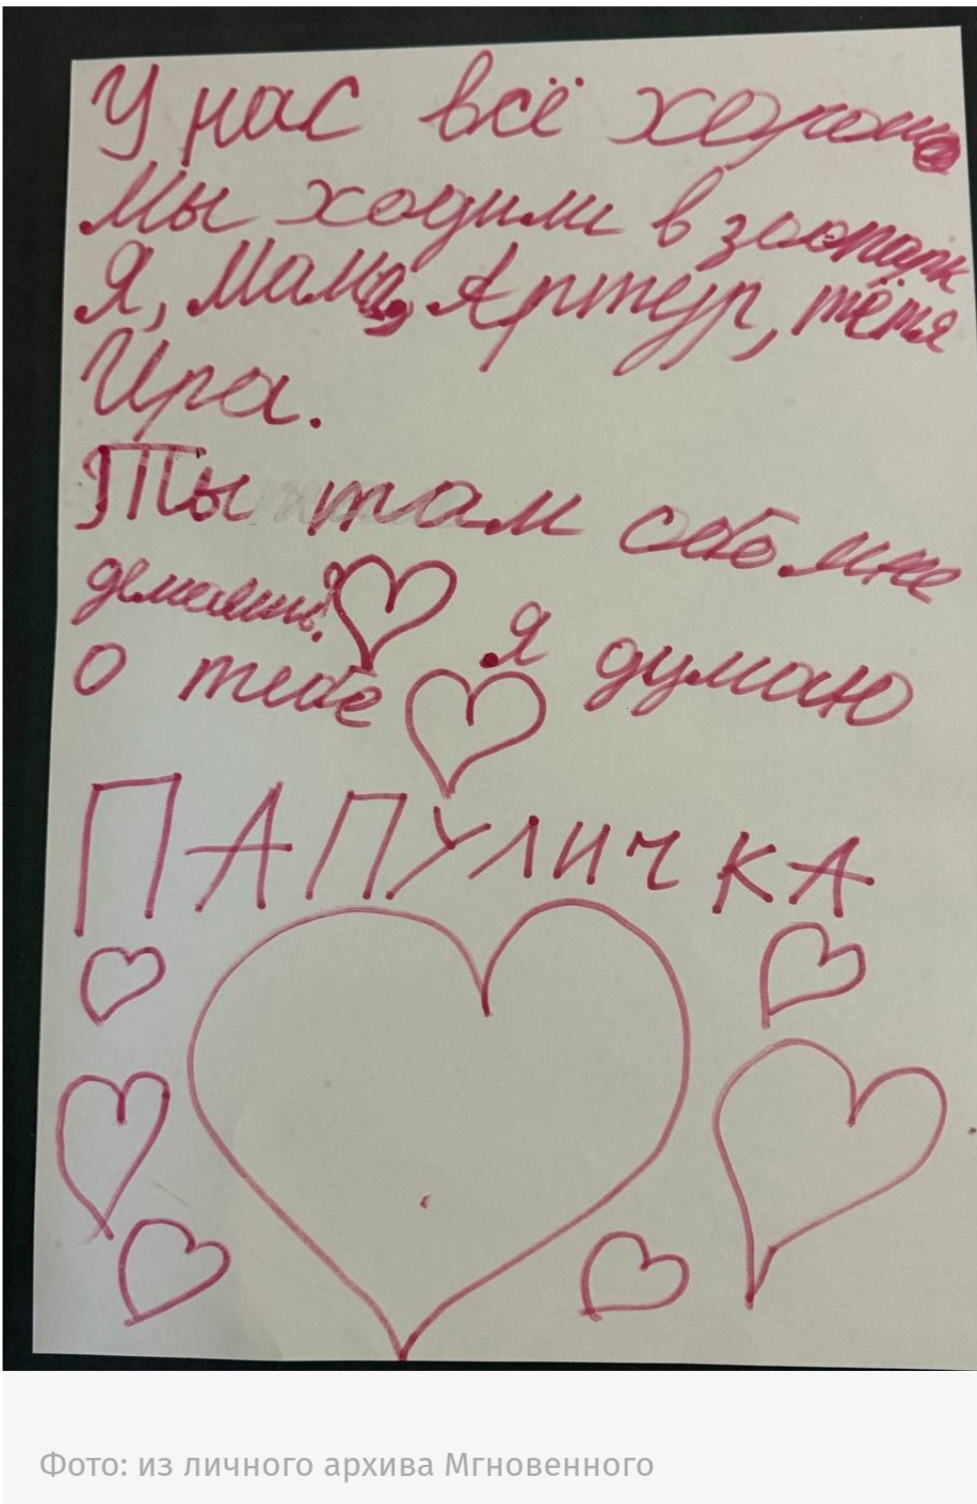 У нас всё хорошо
Мы ходили в зоопарк
Я, мама, Артур, тётя
Ира.
Ты там обо мне
думаешь? Я думаю
о тебе
ПАПУЛИЧКА
Фото: из личного архива Мгновенного